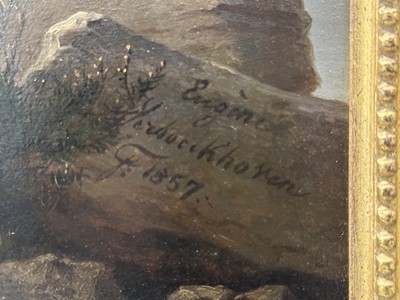 Eugène
Verboeckhoven
F. 1857.